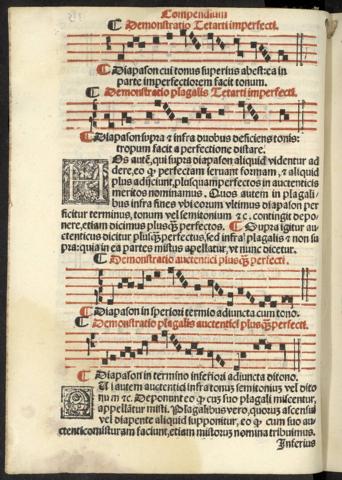 Compendium
Demonstratio Tetarti imperfecti.
Diapason cui tonus superius abest: ea in
parte imperfectiorem facit tonum.
Demonstratio plagalis Tetarti imperfecti.
Diapason supra & infra duobus deficiens tonis:
tropum facit a perfectione distare.
HOs autẽ, qui supra diapason aliquid videntur ad
dere, eo ꝙ perfectam seruant formam, & aliquid
plus adijciunt, plusquamperfectos in auctenticis
meritos nominamus. Quos autem in plagali-
bus infra fines vbi eorum vltimus diapason per
ficitur terminus, tonum vel semitonium &c. contingit depo-
nere, etiam dicimus plusq̃ perfectos. Supra igitur au-
ctenticus dicitur plusq̃perfectus, sed infra plagalis & non su
pra: quia in ea partes mistus apellatur, vt nunc dicetur.
Demonstratio auctentici plusq̃ perfecti.
Diapason in speriori termio adiuncta cum tono.
Demonstratio plagalis auctentici plusq̃perfecti.
Diapason in termino inferiori adiuncta ditono.
QUi autem auctentici infra tonum semitonium vel dito
num &c. Deponunt eo ꝙ cum suo plagali miscentur,
appellãtur misti. Plagalibus vero, quorum ascensui
vel diapente aliquid supponitur, eo ꝙ cum suo au-
ctentico misturam faciunt, etiam mistorus nomina tribuimus.
Inferius